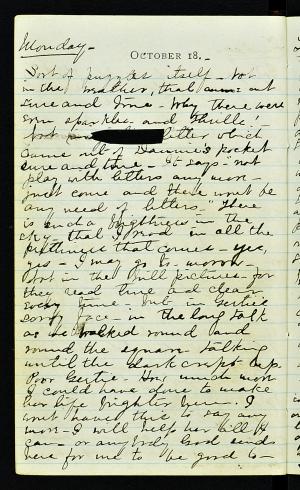 Monday -
October 18.-
Sort of puzzles itself - Not
in the weather, that came out
sure and fine - Why there were
even sparkles and thrills! -
Not letter which
came out of pocket
sure and true - It says "not
play with letters any more -
just come and there won't be
any need of letters." There
is such a brightness in the
sky - that I read in all the
pictures that comes - yes,
yes - I may go to-morrow -
Not in the hill pictures - for
they read true and clear
every time - but in Gertie's
sorry face - in the long talk
as we walked round and
round the square talking
until the dark crept up.
Poor Gertie. How much more
I could have done to make
her life brighter here. I
won't have this to say any
more - I will help her all I
can - or anybody God sends
here for me to be good to -